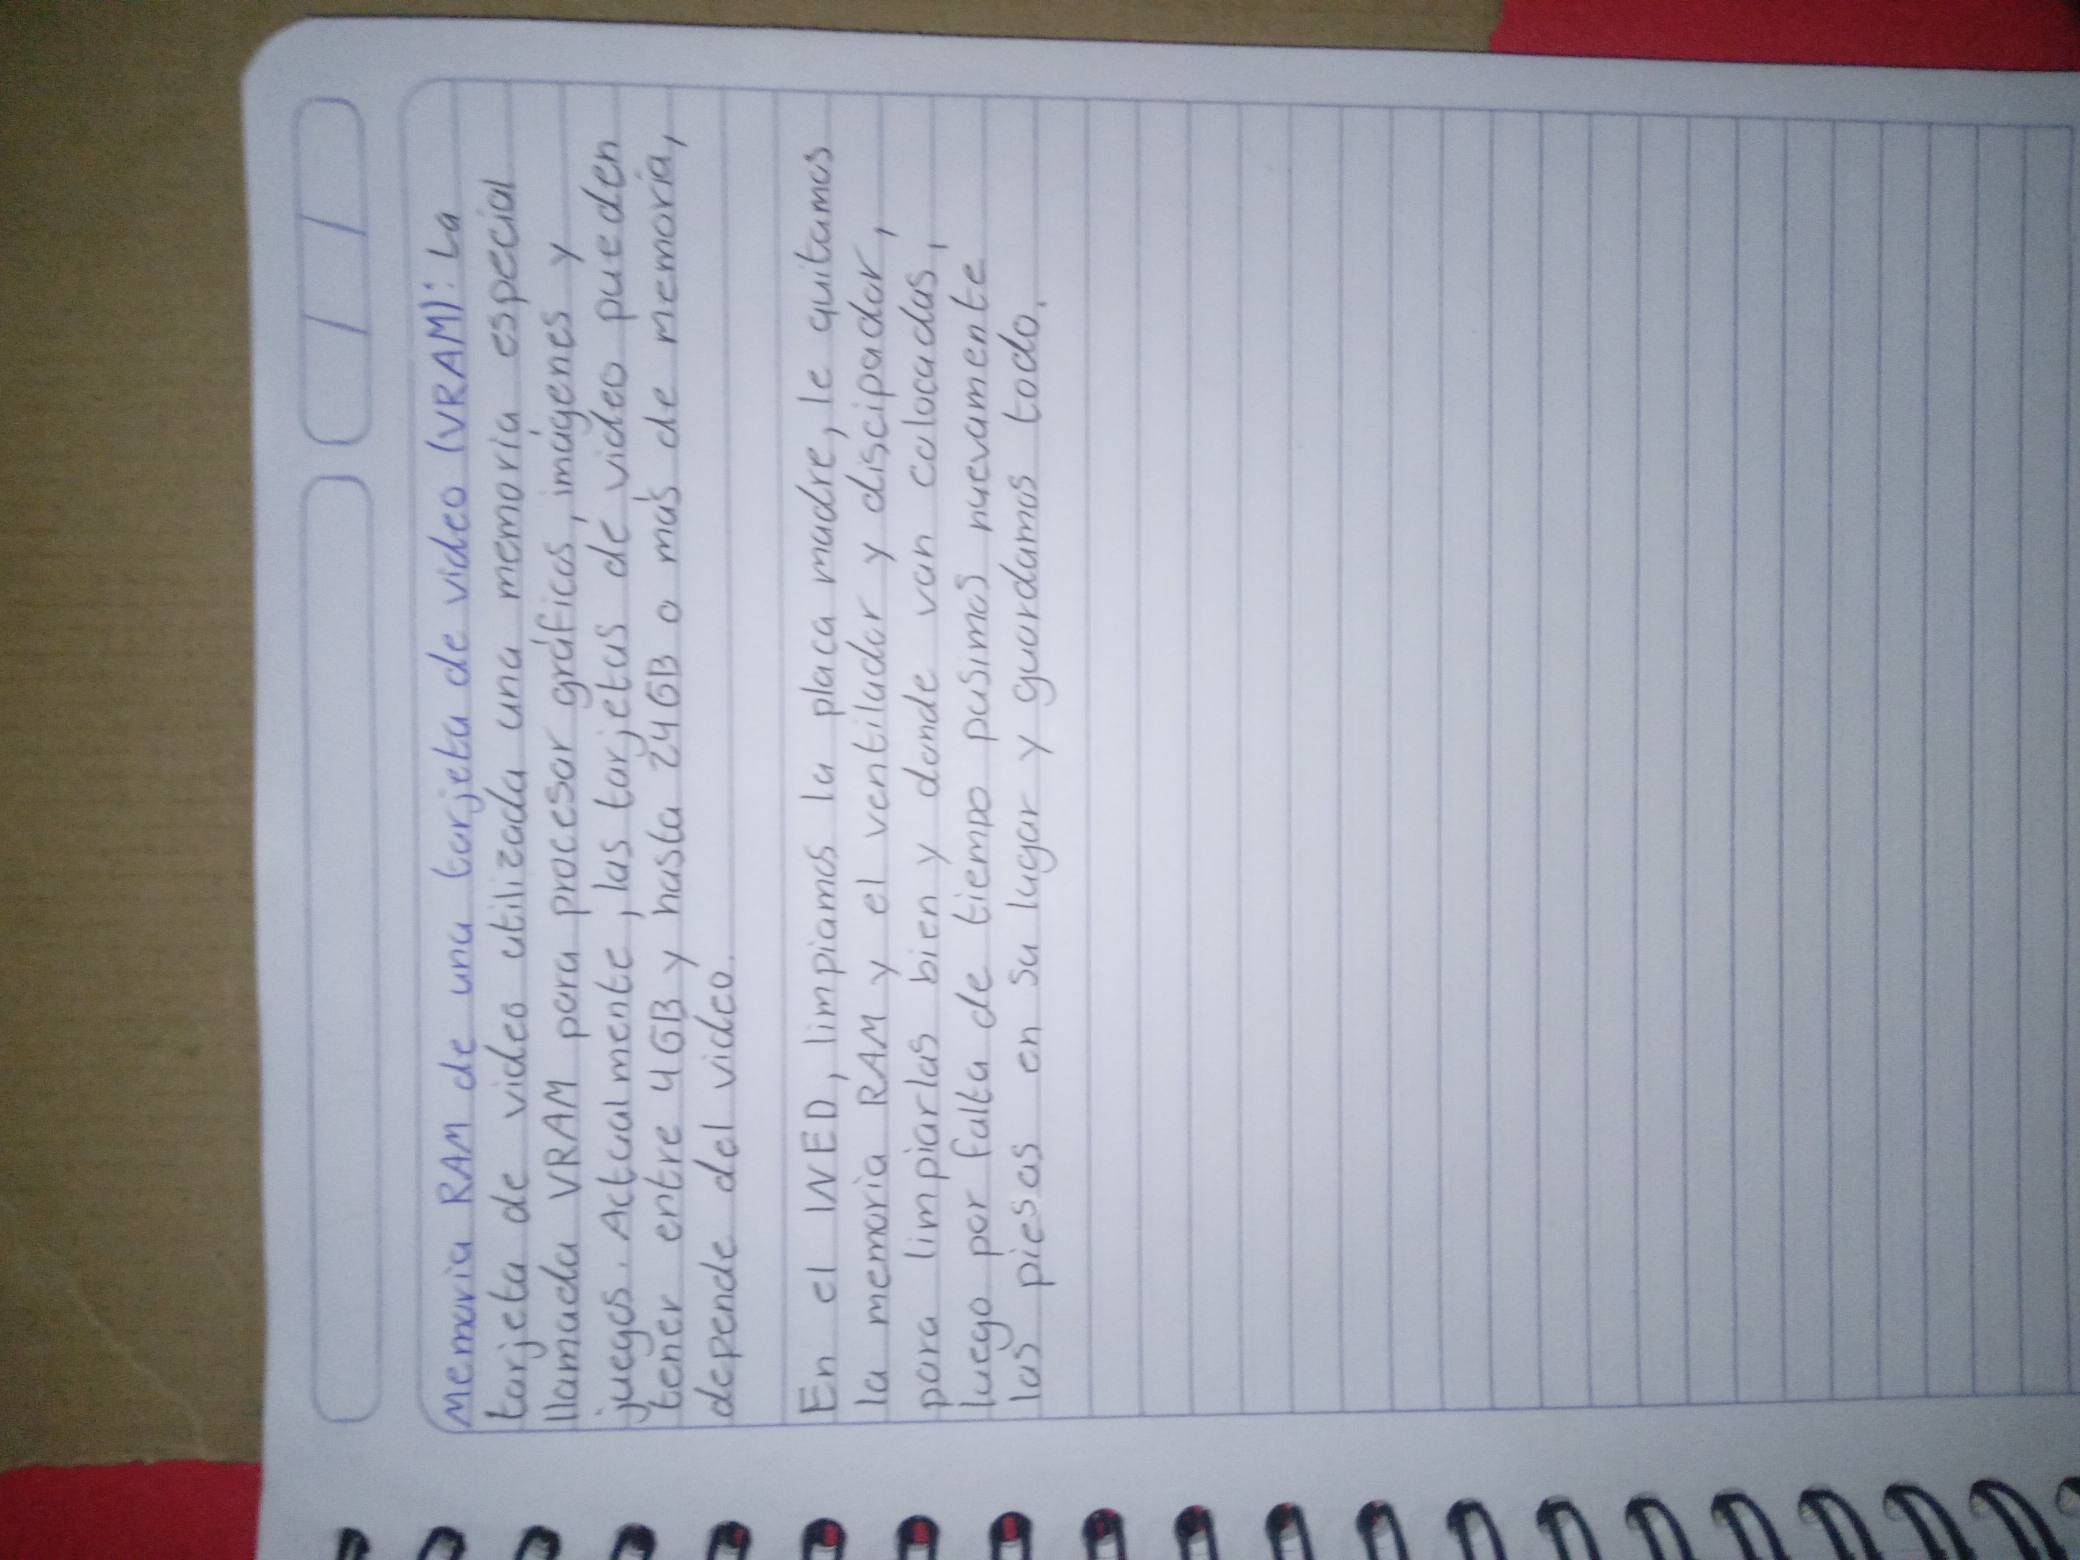 Memoria RAM de una tarjeta de video (VRAM): La
tarjeta de video utilizada una memoria especial
llamada VRAM para procesar gráficos, imágenes y
juegos. Actualmente, las tarjetas de video pueden
tener entre 4GB y hasta 24GB o más de memoria,
depende del video.
En el INED, limpiamos la placa madre, le quitamos
la memoria RAM y el ventilador y discipador,
para limpiarlas bien y donde van colocadas,
luego por falta de tiempo pusimos nuevamente
las piesas en su lugar y guardamos todo.